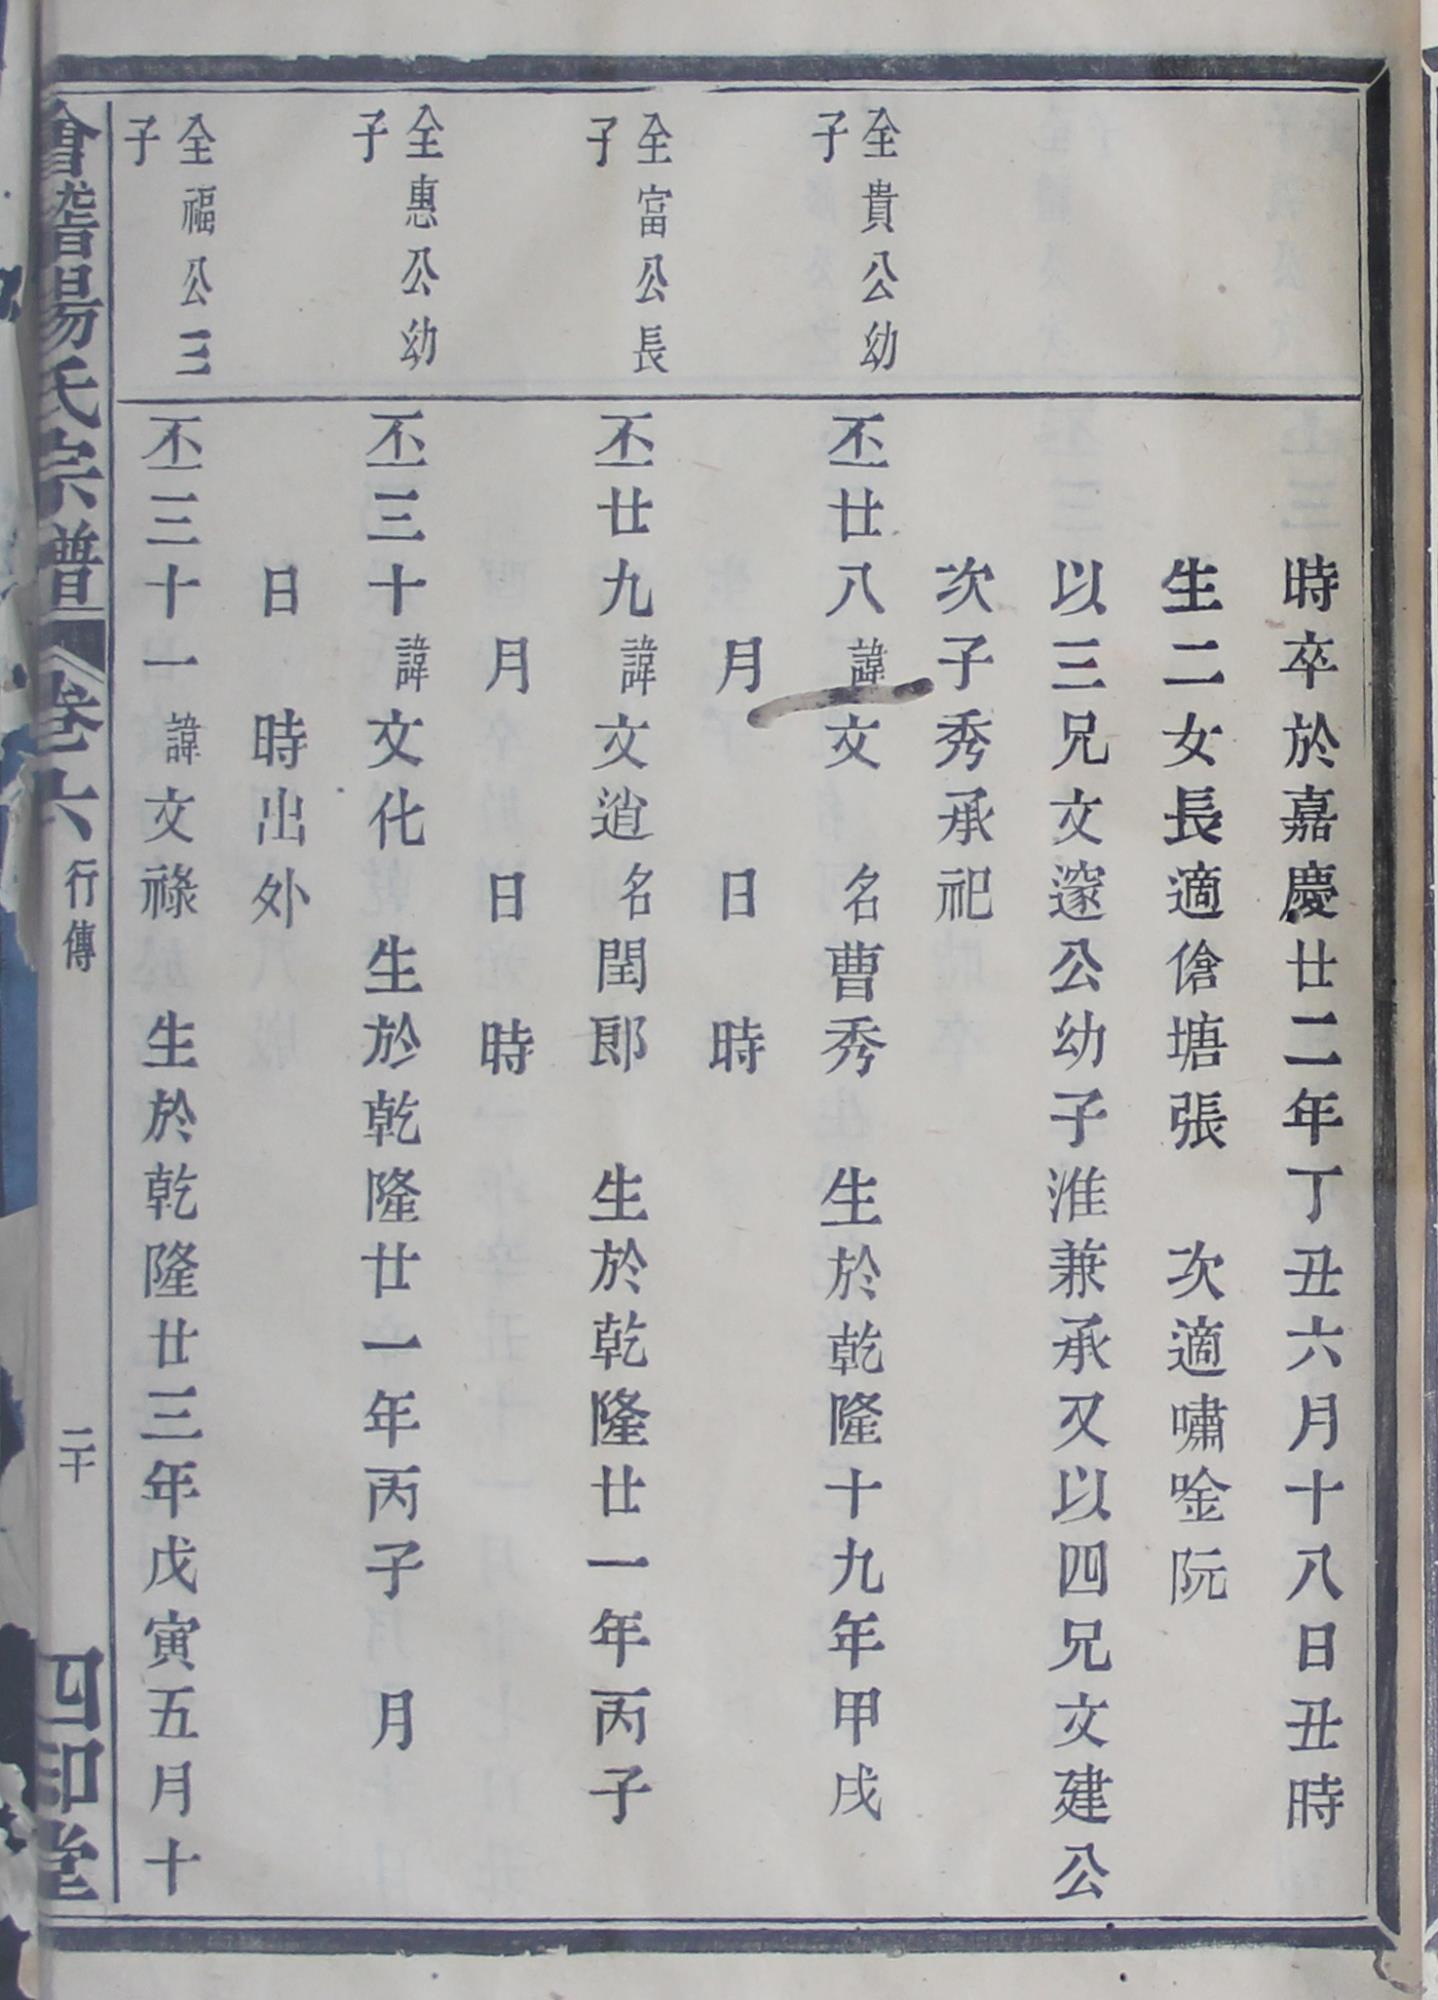 時卒於嘉慶廿二年丁丑六月十八日丑時
生二女長適傖塘張 次適嘯唫阮
以三兄文邃公幼子淮兼承又以四兄文建公
次子秀承祀
仝貴公幼
子
丕廿八諱文 名曹秀 生於乾隆十九年甲戌
月 日 時
仝富公長
子
丕廿九諱文逍名閏郎 生於乾隆廿一年丙子
月 日 時
仝惠公幼
子
丕三十諱文化 生於乾隆廿一年丙子 月
日 時出外
仝福公三
子
丕三十一諱文祿 生於乾隆廿三年戊寅五月十
會稽楊氏宗譜 卷六 行傳 二十 四知堂